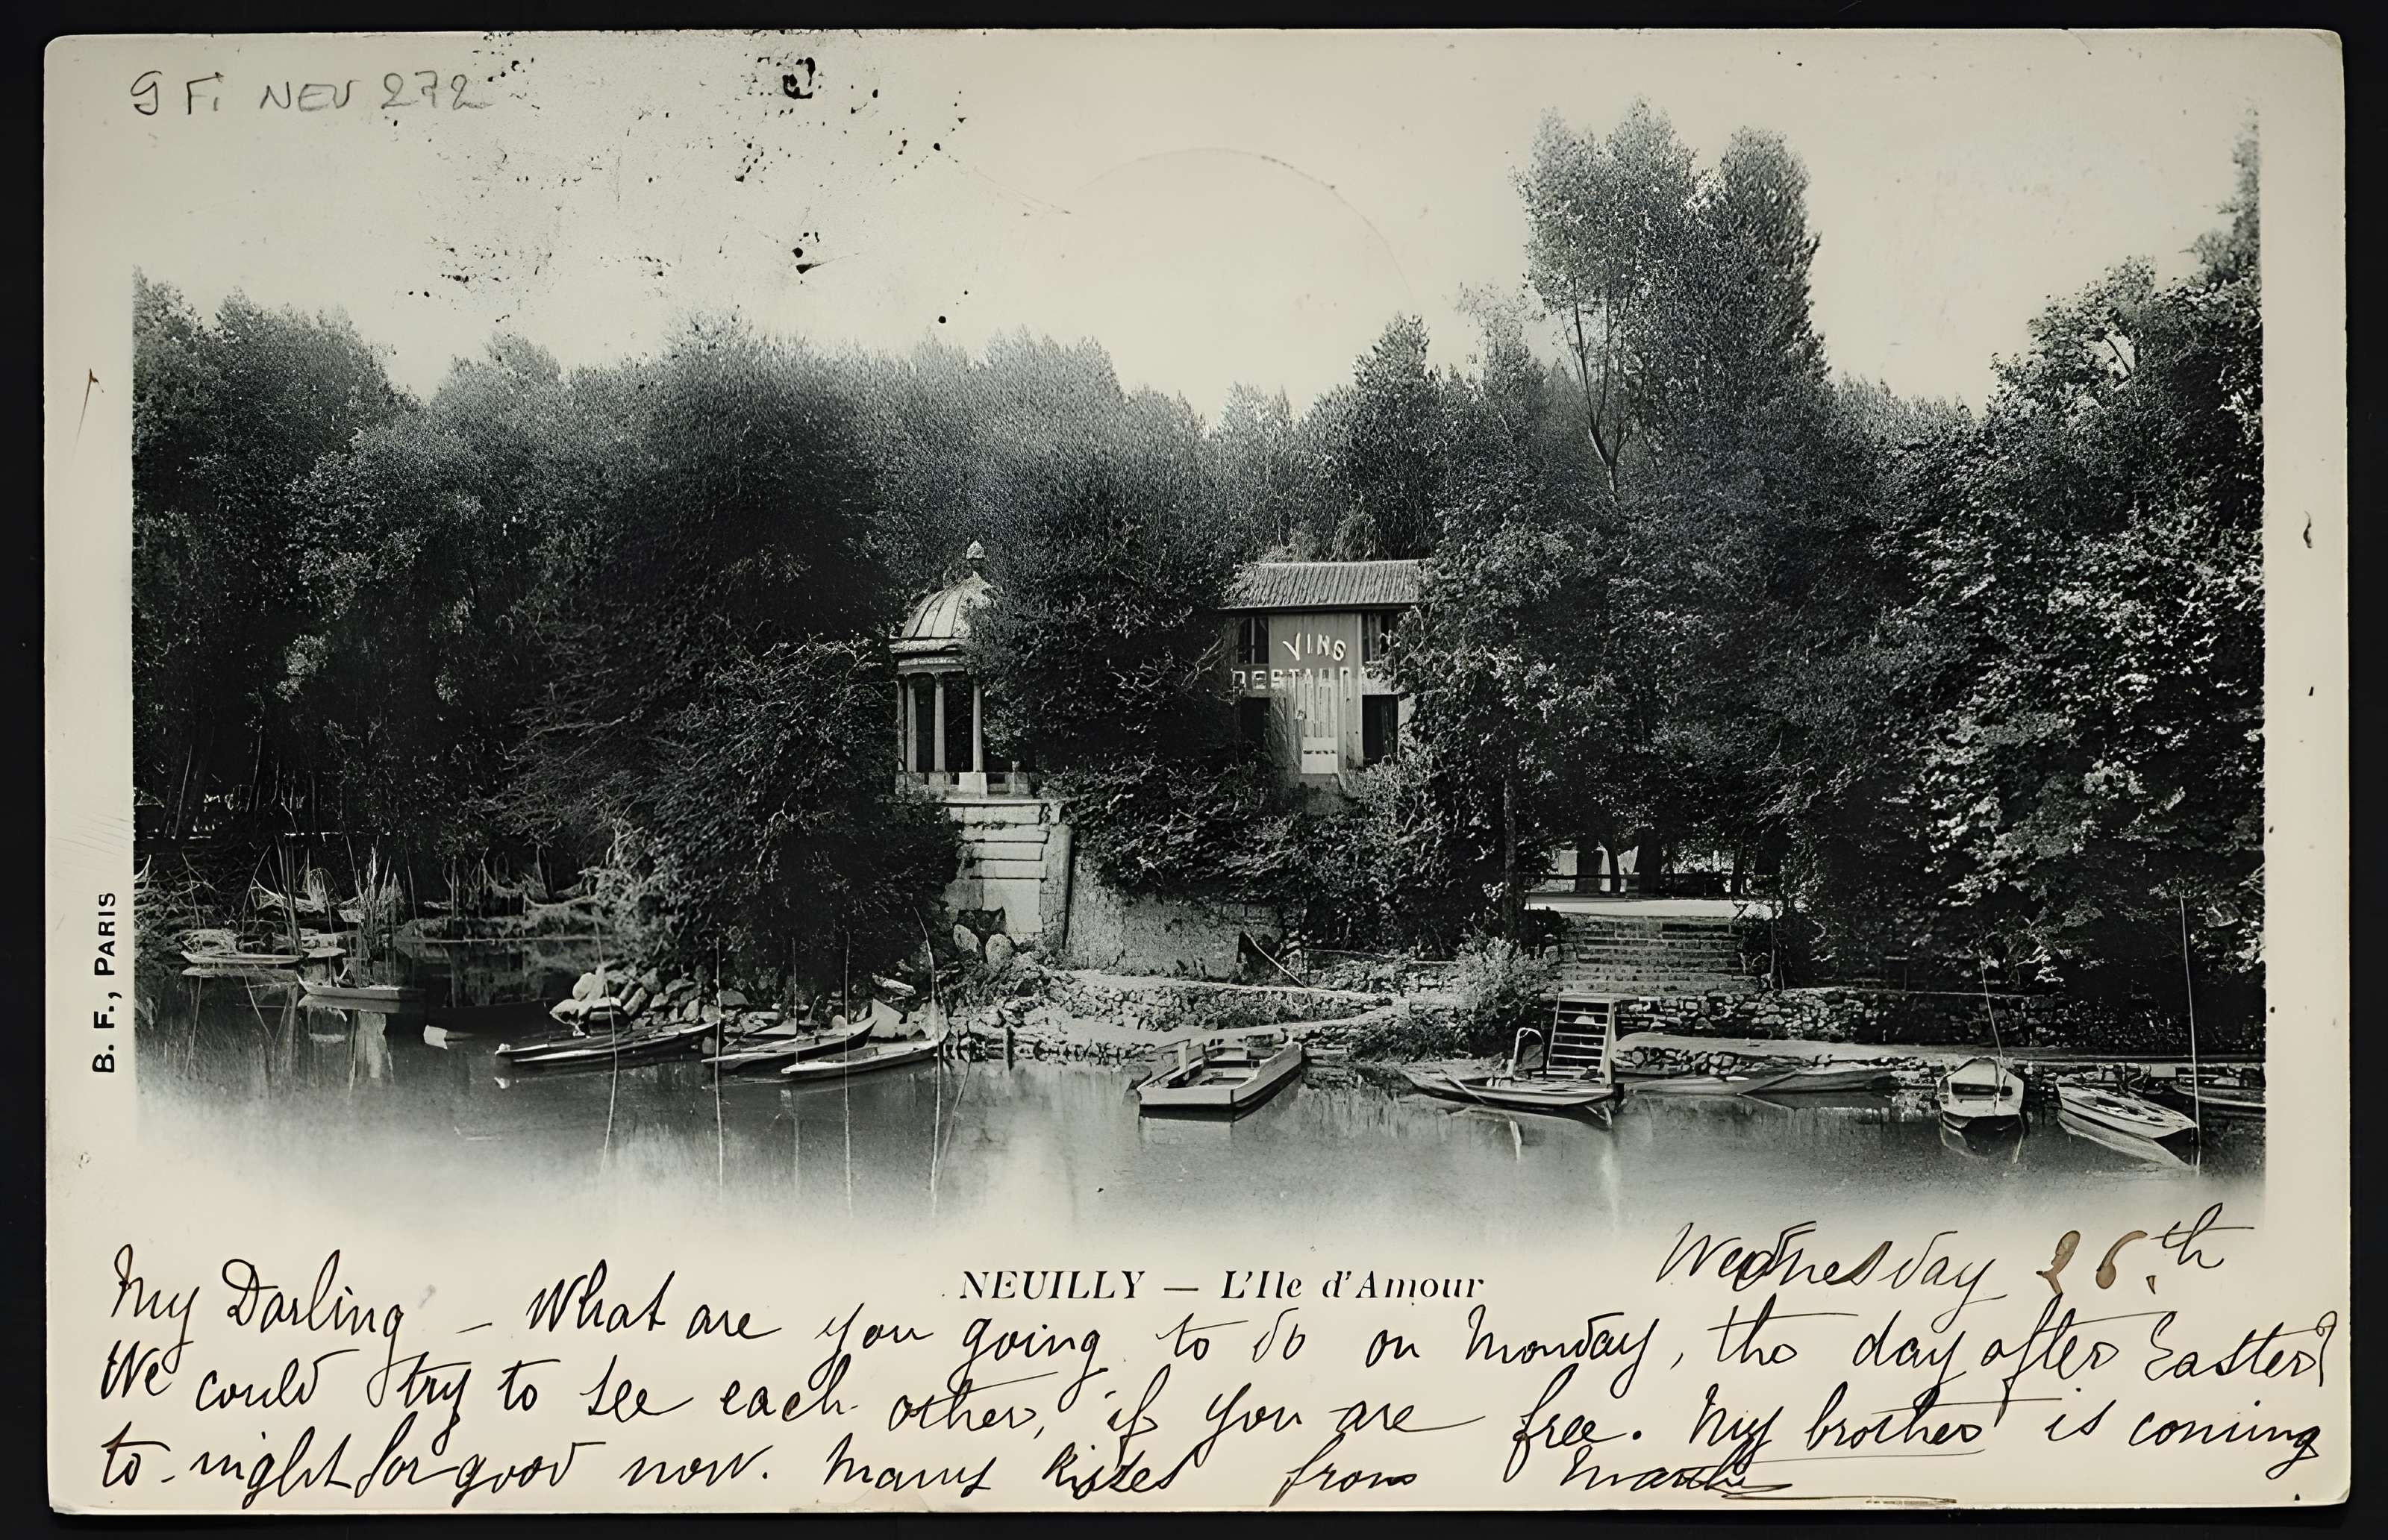 9 Fi NEU 272
VINS
RESTAURA
B. F., PARIS
NEUILLY — L'Ile d'Amour
Wednesday 26.th
My Darling - What are you going to do on Monday, the day after Easter?
We could try to see each other, if you are free. My brother is coming
to-night for good now. Many kisses from